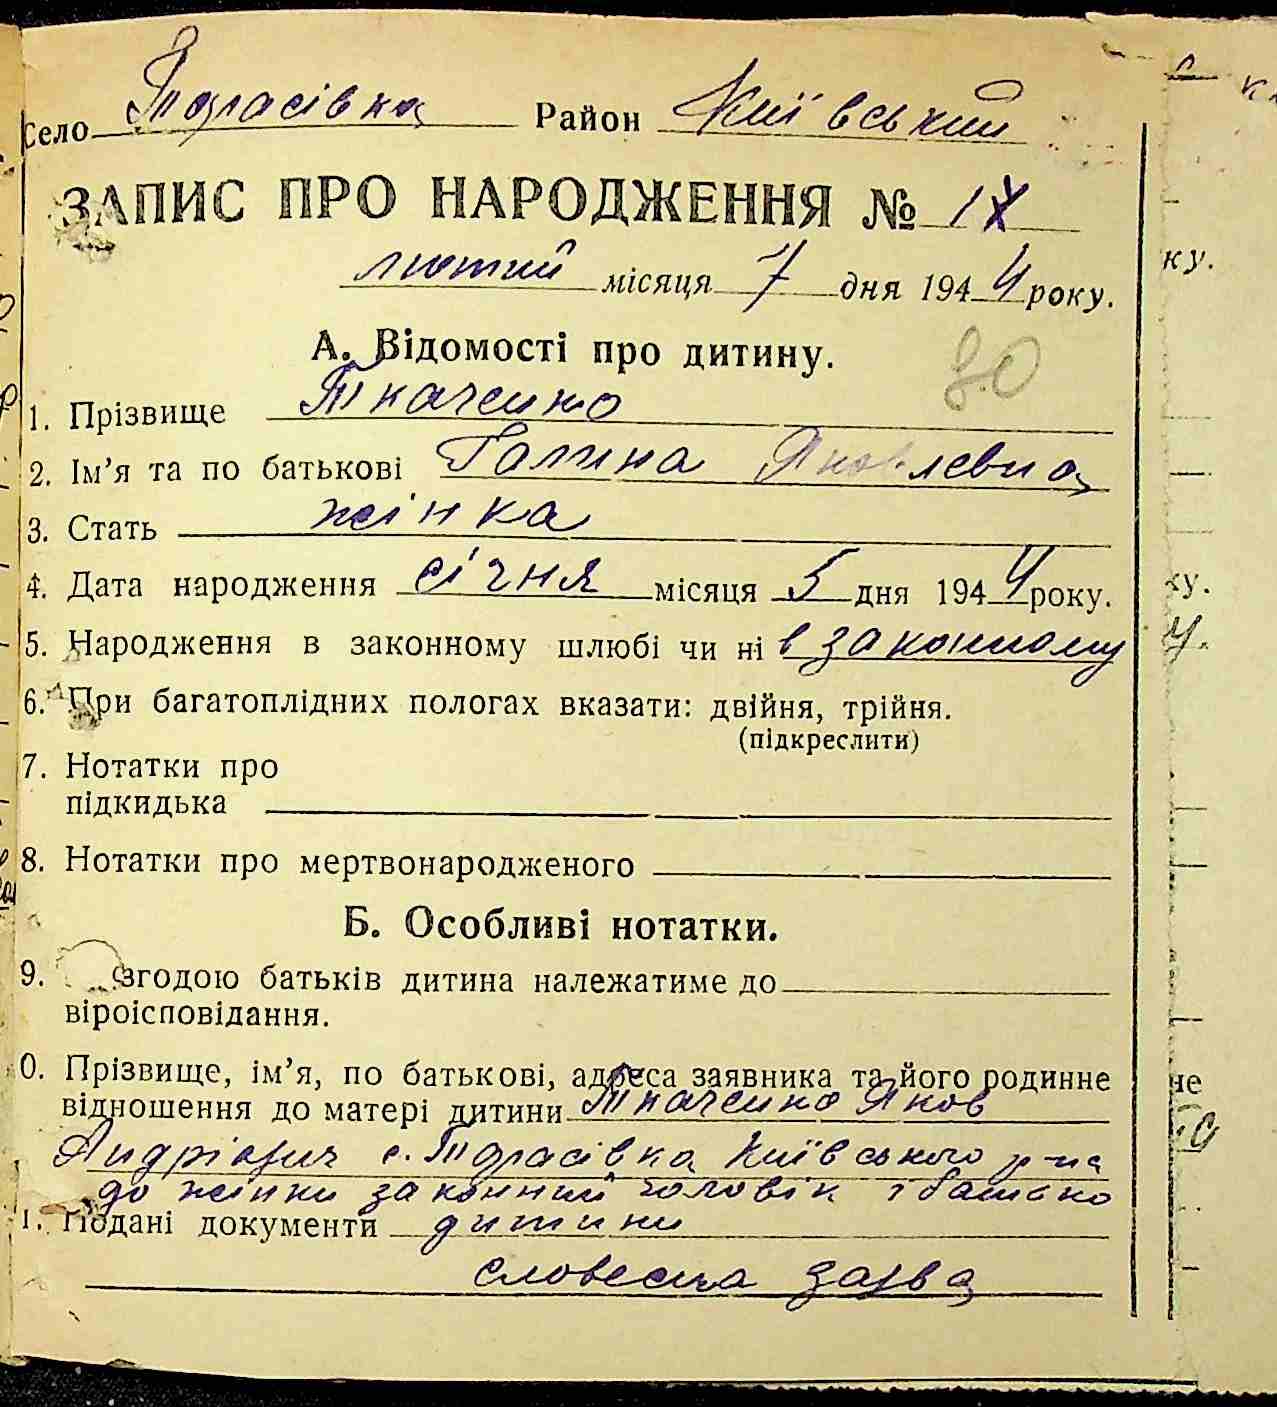 Село Тарасівка Район Київський
ЗАПИС ПРО НАРОДЖЕННЯ №
лютий місяця 7 дня 1944 року.
А. Відомості про дитину.
30
1. Прізвище Ткаченко
2. Ім’я та по батькові Галина Яковлевна
3. Стать жінка
4. Дата народження січня місяця 5 дня 1944 року.
5. Народження в законному шлюбі чи ні в законному
6. При багатоплідних пологах вказати: двійня, трійня.
(підкреслити)
7. Нотатки про
підкидька
8. Нотатки про мертвонародженого
Б. Особливі нотатки.
9. згодою батьків дитина належатиме до
віроісповідання.
0. Прізвище, ім’я, по батькові, адреса заявника та його родинне
відношення до матері дитини Ткаченко Яков
Андрієвич с. Тарасівка Київського р-на
до жінки законний чоловік і батько
1. Подані документи дитини
словесна заява